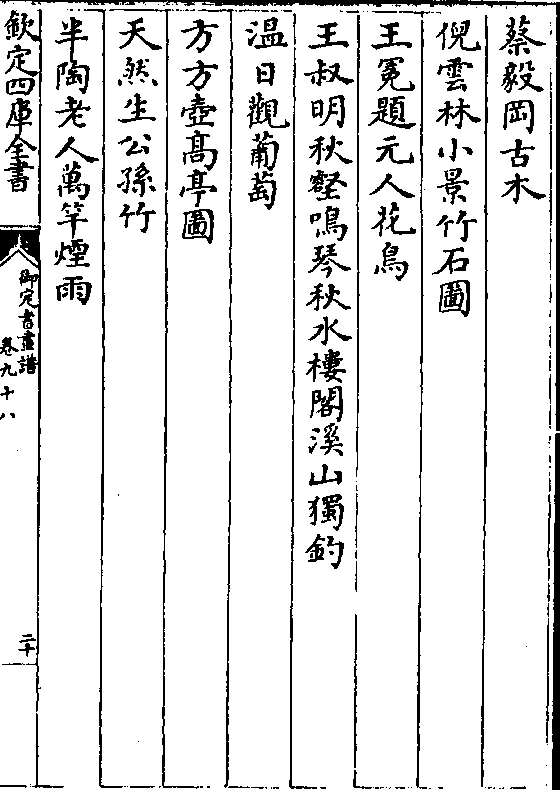 蔡毅岡古木
倪雲林小景竹石圖
王冕題元人花鳥
王叔明秋壑鳴琴秋水樓閣溪山獨釣
溫日觀葡萄
方方壺高亭圖
天然生公孫竹
半陶老人萬竿煙雨
欽定四庫全書
御定書畫譜
卷九十八
二十